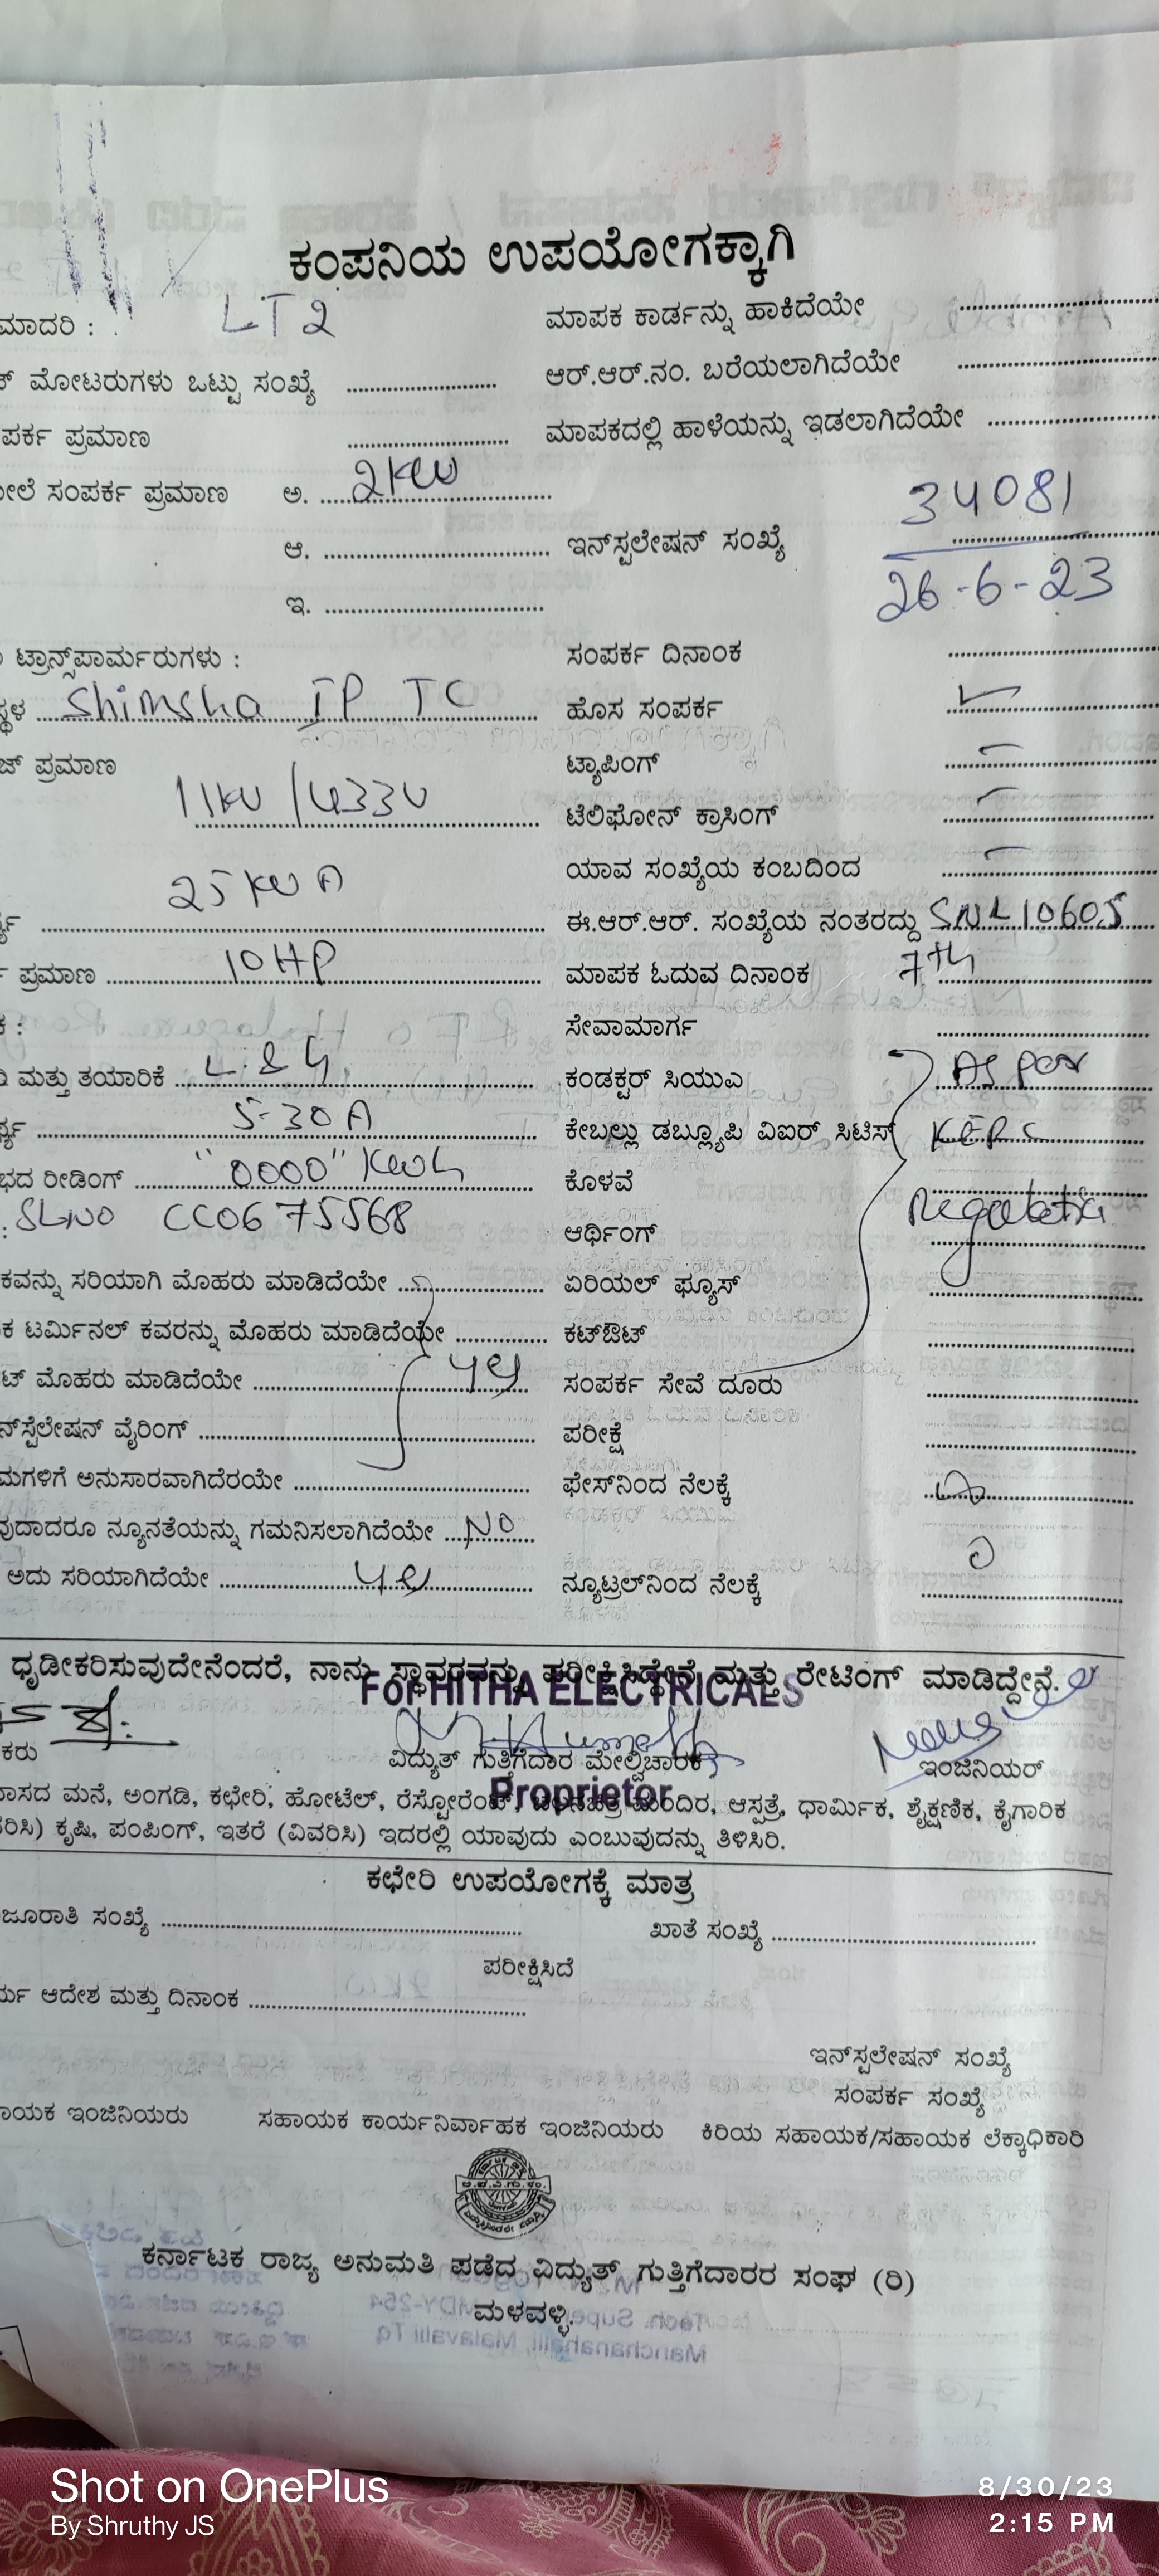 ಕಂಪನಿಯ ಉಪಯೋಗಕ್ಕಾಗಿ
ಮಾದರಿ : LT2 ಮಾಪಕ ಕಾರ್ಡನ್ನು ಹಾಕಿದೆಯೇ
ಮೋಟರುಗಳು ಒಟ್ಟು ಸಂಖ್ಯೆ ಆರ್.ಆರ್.ನಂ. ಬರೆಯಲಾಗಿದೆಯೇ
ಪರ್ಕ ಪ್ರಮಾಣ ಮಾಪಕದಲ್ಲಿ ಹಾಳೆಯನ್ನು ಇಡಲಾಗಿದೆಯೇ
ಸಂಪರ್ಕ ಪ್ರಮಾಣ ಅ. 2KW
34081
ಆ. ಇನ್‌ಸ್ಟಲೇಷನ್ ಸಂಖ್ಯೆ
26-6-23
ಇ.
ಟ್ರಾನ್ಸ್‌ಪಾರ್ಮರುಗಳು : ಸಂಪರ್ಕ ದಿನಾಂಕ
ಸ್ಥಳ Shimsha IP TC ಹೊಸ ಸಂಪರ್ಕ
ಪ್ರಮಾಣ ಟ್ಯಾಪಿಂಗ್
11KV/433V ಟೆಲಿಫೋನ್ ಕ್ರಾಸಿಂಗ್
25KVA ಯಾವ ಸಂಖ್ಯೆಯ ಕಂಬದಿಂದ
ಈ.ಆರ್.ಆರ್. ಸಂಖ್ಯೆಯ ನಂತರದ್ದು SNL10605
ಪ್ರಮಾಣ 10HP ಮಾಪಕ ಓದುವ ದಿನಾಂಕ 7th
ಸೇವಾಮಾರ್ಗ
ಮತ್ತು ತಯಾರಿಕೆ L&G ಕಂಡಕ್ಟರ್ ಸಿಯುಎ As per
5-30A ಕೇಬಲ್ಲು ಡಬ್ಲ್ಯೂಪಿ ವಿಐರ್ ಸಿಟಿಸ್ KERC
ಭದ ರೀಡಿಂಗ್ "0000" KWh ಕೊಳವೆ
SLNO CC0675568 ಆರ್ಥಿಂಗ್ Regulation
ಕವನ್ನು ಸರಿಯಾಗಿ ಮೊಹರು ಮಾಡಿದೆಯೇ ಏರಿಯಲ್ ಫ್ಯೂಸ್
ಕ ಟರ್ಮಿನಲ್ ಕವರನ್ನು ಮೊಹರು ಮಾಡಿದೆಯೇ ಕಟ್‌ಔಟ್
ಟ್ ಮೊಹರು ಮಾಡಿದೆಯೇ ಸಂಪರ್ಕ ಸೇವೆ ದೂರು
ನ್‌ಸ್ಟೆಲೇಷನ್ ವೈರಿಂಗ್ ಪರೀಕ್ಷೆ
ಮಗಳಿಗೆ ಅನುಸಾರವಾಗಿದೆರಯೇ ಫೇಸ್‌ನಿಂದ ನೆಲಕ್ಕೆ
ವುದಾದರೂ ನ್ಯೂನತೆಯನ್ನು ಗಮನಿಸಲಾಗಿದೆಯೇ NO
ಅದು ಸರಿಯಾಗಿದೆಯೇ ನ್ಯೂಟ್ರಲ್‌ನಿಂದ ನೆಲಕ್ಕೆ
ಧೃಡೀಕರಿಸುವುದೇನೆಂದರೆ, ನಾನು ಸ್ಥಾವರವನ್ನು ಪರೀಕ್ಷಿಸಿದ್ದೇನೆ ಮತ್ತು ರೇಟಿಂಗ್ ಮಾಡಿದ್ದೇನೆ.
For HITHA ELECTRICALS
ಕರು ವಿದ್ಯುತ್ ಗುತ್ತಿಗೆದಾರ ಮೇಲ್ವಿಚಾರಕ ಇಂಜಿನಿಯರ್
Proprietor
ವಾಸದ ಮನೆ, ಅಂಗಡಿ, ಕಛೇರಿ, ಹೋಟೆಲ್, ರೆಸ್ಟೋರೆಂಟ್, ಮಂದಿರ, ಆಸ್ಪತ್ರೆ, ಧಾರ್ಮಿಕ, ಶೈಕ್ಷಣಿಕ, ಕೈಗಾರಿಕ
ರಿಸಿ) ಕೃಷಿ, ಪಂಪಿಂಗ್, ಇತರೆ (ವಿವರಿಸಿ) ಇದರಲ್ಲಿ ಯಾವುದು ಎಂಬುವುದನ್ನು ತಿಳಿಸಿರಿ.
ಕಛೇರಿ ಉಪಯೋಗಕ್ಕೆ ಮಾತ್ರ
ಜೂರಾತಿ ಸಂಖ್ಯೆ ಖಾತೆ ಸಂಖ್ಯೆ
ಪರೀಕ್ಷಿಸಿದೆ
ರ್ಮ ಆದೇಶ ಮತ್ತು ದಿನಾಂಕ
ಇನ್‌ಸ್ಟಲೇಷನ್ ಸಂಖ್ಯೆ
ಸಂಪರ್ಕ ಸಂಖ್ಯೆ
ಾಯಕ ಇಂಜಿನಿಯರು ಸಹಾಯಕ ಕಾರ್ಯನಿರ್ವಾಹಕ ಇಂಜಿನಿಯರು ಕಿರಿಯ ಸಹಾಯಕ/ಸಹಾಯಕ ಲೆಕ್ಕಾಧಿಕಾರಿ
ಕರ್ನಾಟಕ ರಾಜ್ಯ ಅನುಮತಿ ಪಡೆದ ವಿದ್ಯುತ್ ಗುತ್ತಿಗೆದಾರರ ಸಂಘ (ರಿ)
ಮಳವಳ್ಳಿ.
Shot on OnePlus
By Shruthy JS
8/30/23
2:15 PM